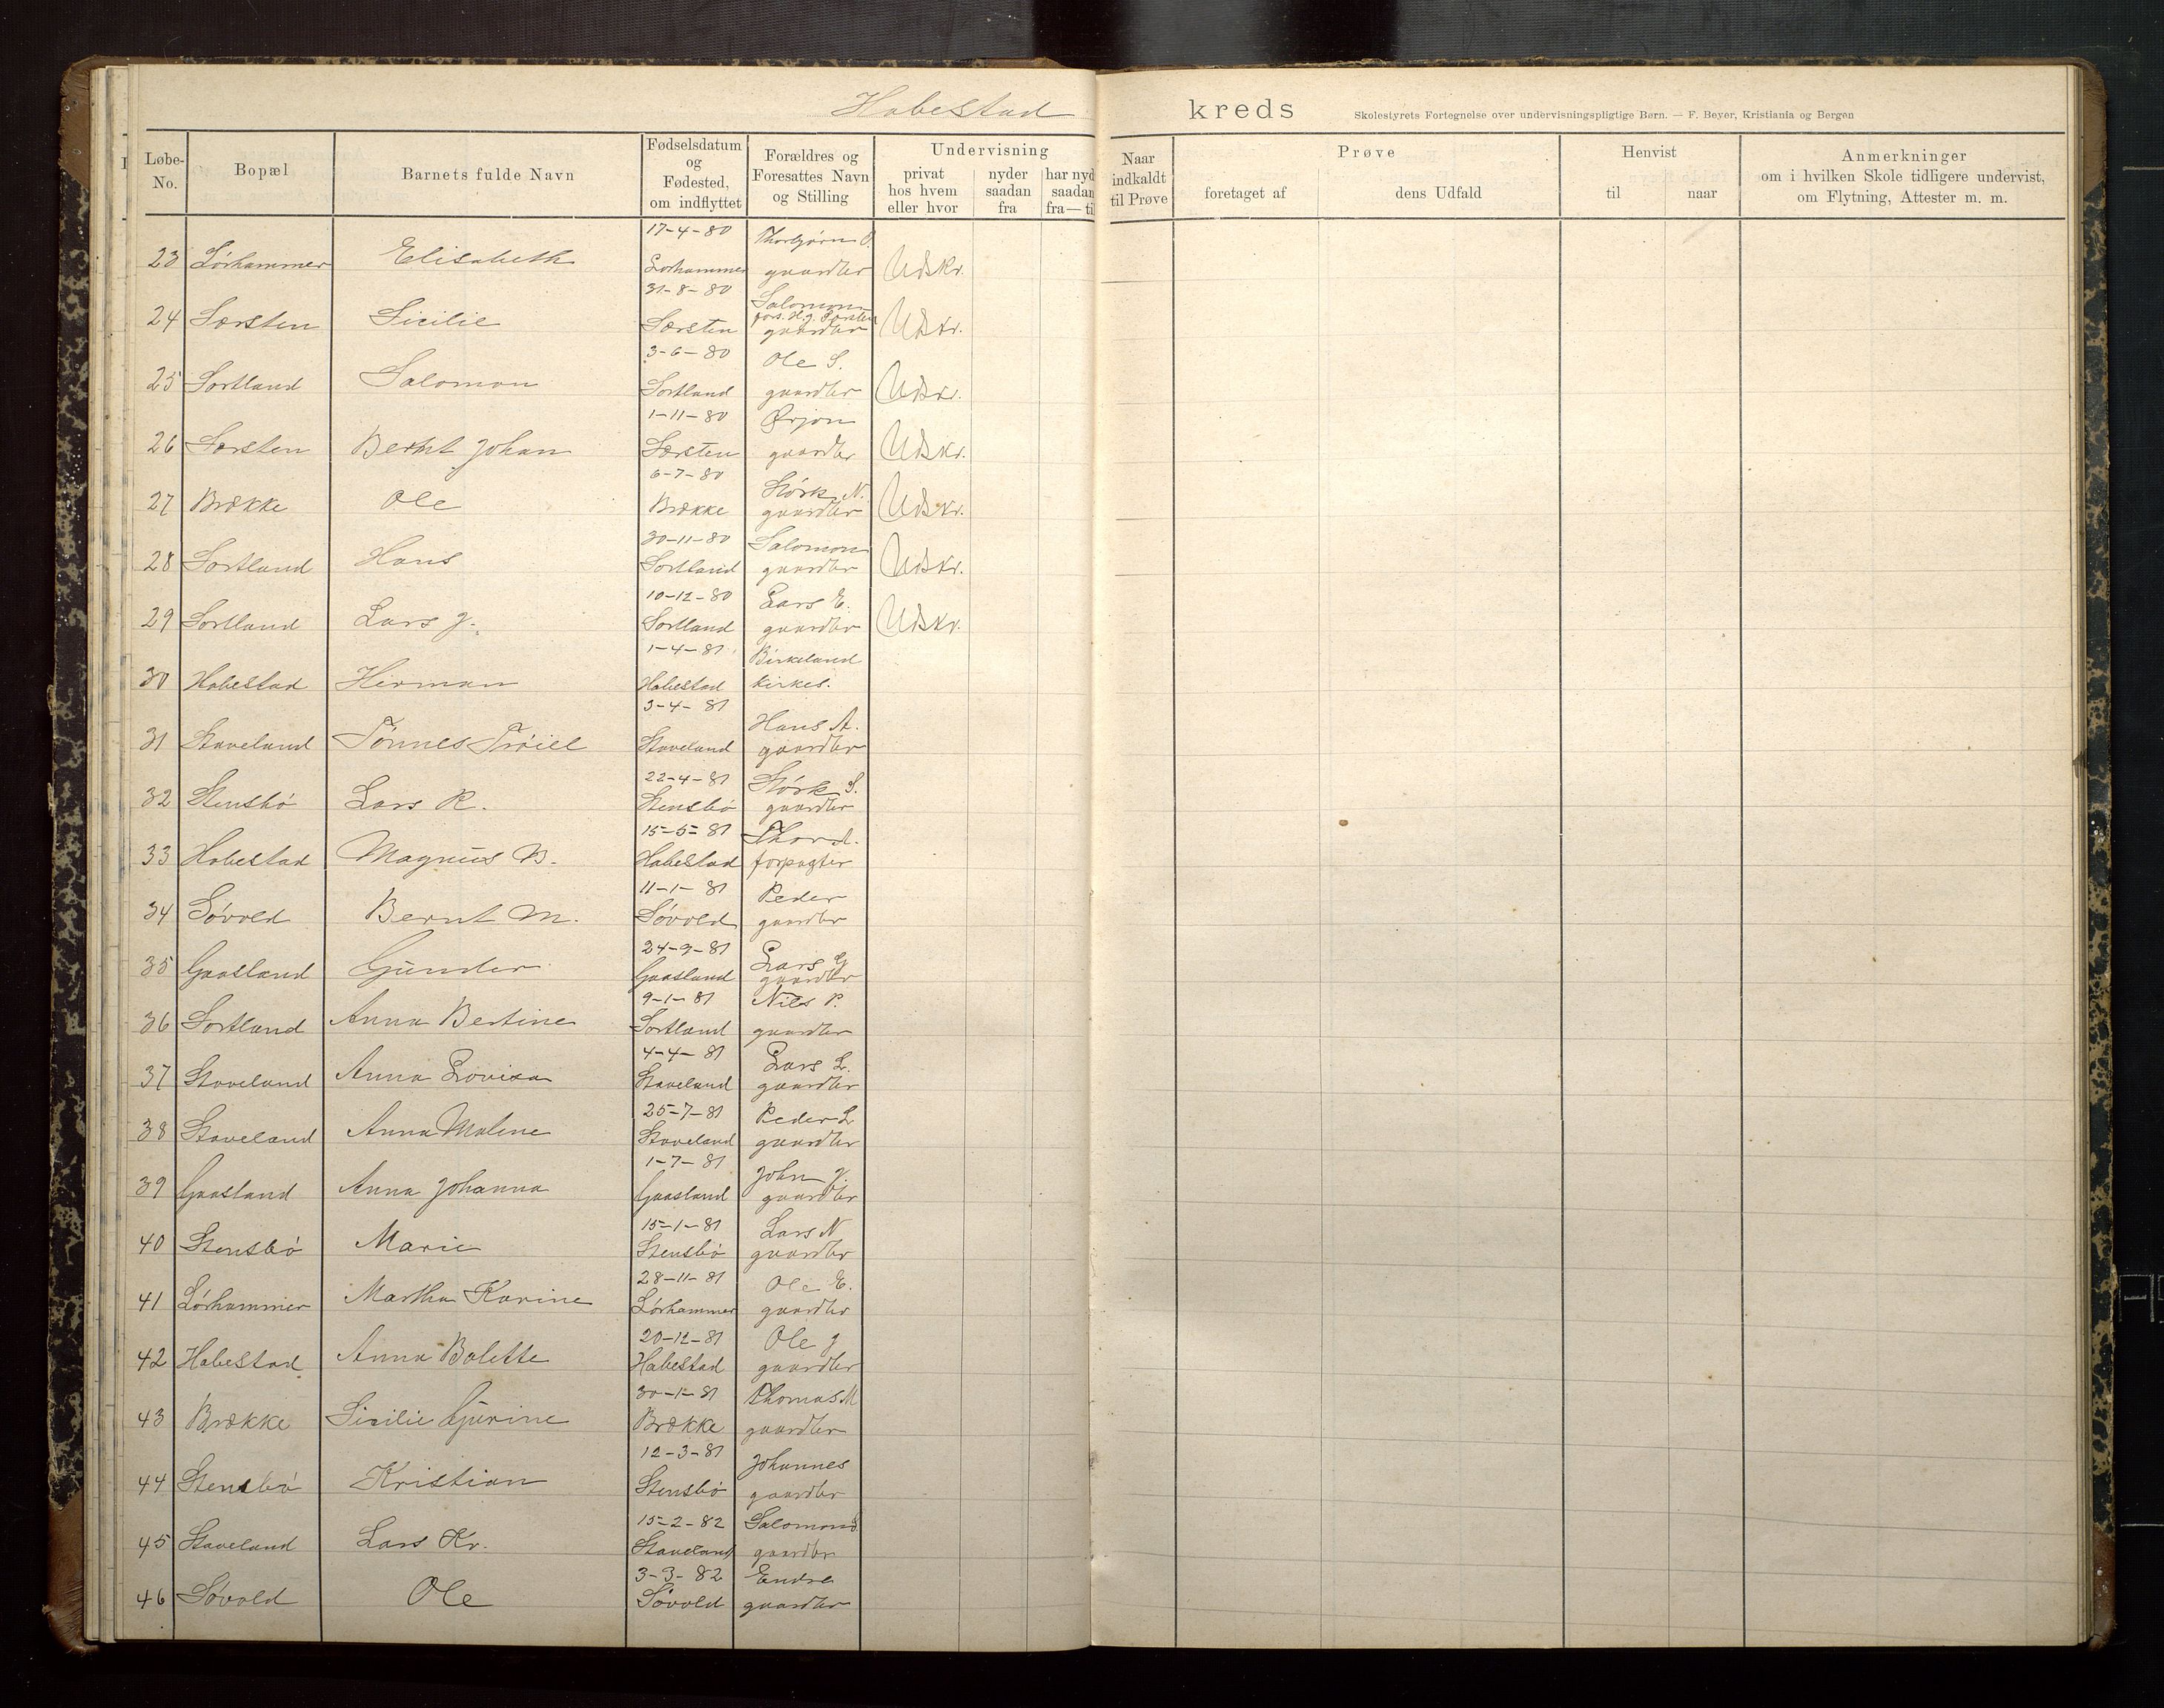 Habestad kreds Skolestyrets Fortegnelse over undervisningspligtige Børn. — F. Beyer, Kristiania og Bergen
Løbe-No. Bopæl Barnets fulde Navn Fødselsdatum og Fødested, om indflyttet Forældres og Foresattes Navn og Stilling Undervisning privat hos hvem eller hvor nyder saadan fra har nyd saadan fra—ti Naar indkaldt til Prøve Prøve foretaget af dens Udfald Henvist til naar Anmerkninger om i hvilken Skole tidligere undervist, om Flytning, Attester m. m.
17-4-80 Thorbjørn O.
23 Lørhammer Elisabeth Lørhammer gaardbr Udskr.
31-8-80 Salomon
24 Sørsten Sicilie Sørsten gaardbr Udskr.
3-6-80 Ole S.
25 Sortland Salomon Sortland gaardbr Udskr.
1-11-80 Ørjon
26 Sørsten Bernt Johan Sørsten gaardbr Udskr.
6-7-80 Størk N.
27 Brække Ole Brække gaardbr Udskr.
30-11-80 Salomon
28 Sortland Hans Sortland gaardbr Udskr.
10-12-80 Lars E.
29 Sortland Lars J. Sortland gaardbr Udskr.
1-4-81 Birkeland
30 Habestad Herman Habestad kirkes.
3-4-81 Hans A.
31 Staveland Tønnes Trøiel Staveland gaardbr
22-4-81 Størk S.
32 Stensbø Lars R. Stensbø gaardbr
15-5-81 Thord.
33 Habestad Magnus B. Habestad forpagter
11-1-81 Peder
34 Søvold Bernt M. Søvold gaardbr
24-9-81 Lars G
35 Gaasland Gunder Gaasland gaardbr
9-1-81 Nils P.
36 Sortland Anna Bertine Sortland gaardbr
4-4-81 Lars L.
37 Staveland Anna Lovisa Staveland gaardbr
25-7-81 Peder L
38 Staveland Anna Malene Staveland gaardbr
1-7-81 John J.
39 Gaasland Anna Johanna Gaasland gaardbr
15-1-81 Lars N
40 Stensbø Marie Stensbø gaardbr
28-11-81 Ole E.
41 Lørhammer Martha Karine Lørhammer gaardbr
20-12-81 Ole J
42 Habestad Anna Bolette Habestad gaardbr
30-1-81 Thomas M
43 Brække Sicilie Gurine Brække gaardbr
12-3-81 Johannes
44 Stensbø Kristian Stensbø gaardbr
15-2-82 Salomon S.
45 Staveland Lars Kr. Staveland gaardbr
3-3-82 Endre
46 Søvold Ole Søvold gaardbr